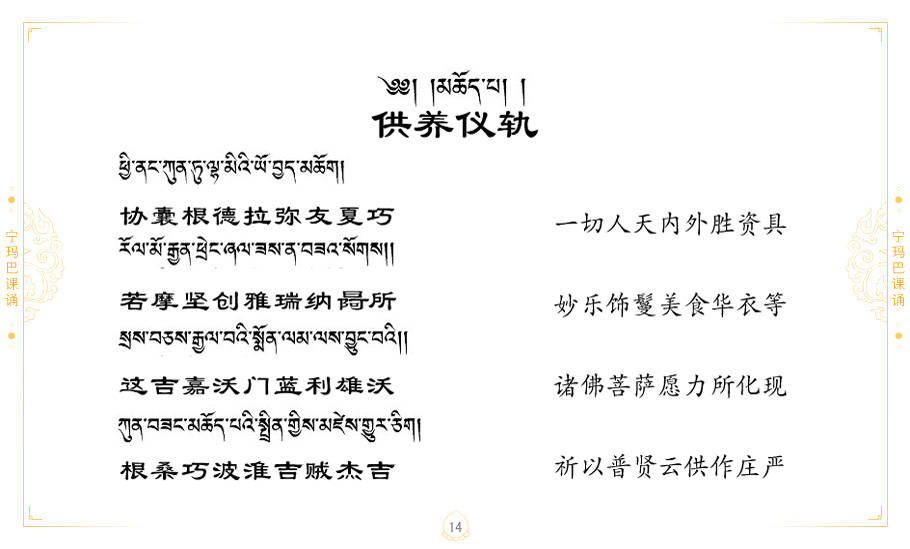 ༄༅། །མཆོད་པ། །
供养仪轨
ཕྱི་ནང་ཀུན་ཏུ་ལྷ་མིའི་ཡོ་བྱད་མཆོག།
协囊根德拉弥友夏巧
一切人天内外胜资具
རོལ་མོ་རྒྱན་ཕྲེང་ཞལ་ཟས་ན་བཟའ་སོགས།།
若摩坚创雅瑞纳曷所
妙乐饰鬘美食华衣等
སྲས་བཅས་རྒྱལ་བའི་སྨོན་ལམ་ལས་བྱུང་བའི།།
这吉嘉沃门蓝利雄沃
诸佛菩萨愿力所化现
ཀུན་བཟང་མཆོད་པའི་སྤྲིན་གྱིས་མཛེས་གྱུར་ཅིག།
根桑巧波淮吉贼杰吉
祈以普贤云供作庄严
宁玛巴课诵
宁玛巴课诵
14